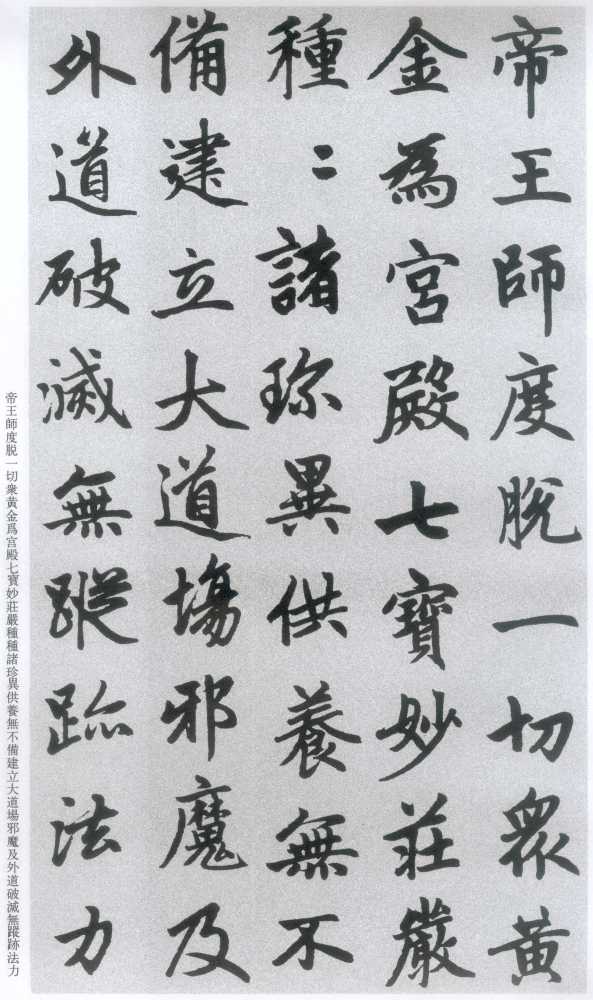 帝王師度脫一切眾黃
金為宮殿七寶妙莊嚴
種〻諸珎異供養無不
備建立大道場邪魔及
外道破滅無蹤跡法力
帝王師度脱一切衆黄金爲宫殿七寶妙莊嚴種種諸珍異供養無不備建立大道場邪魔及外道破滅無蹤跡法力